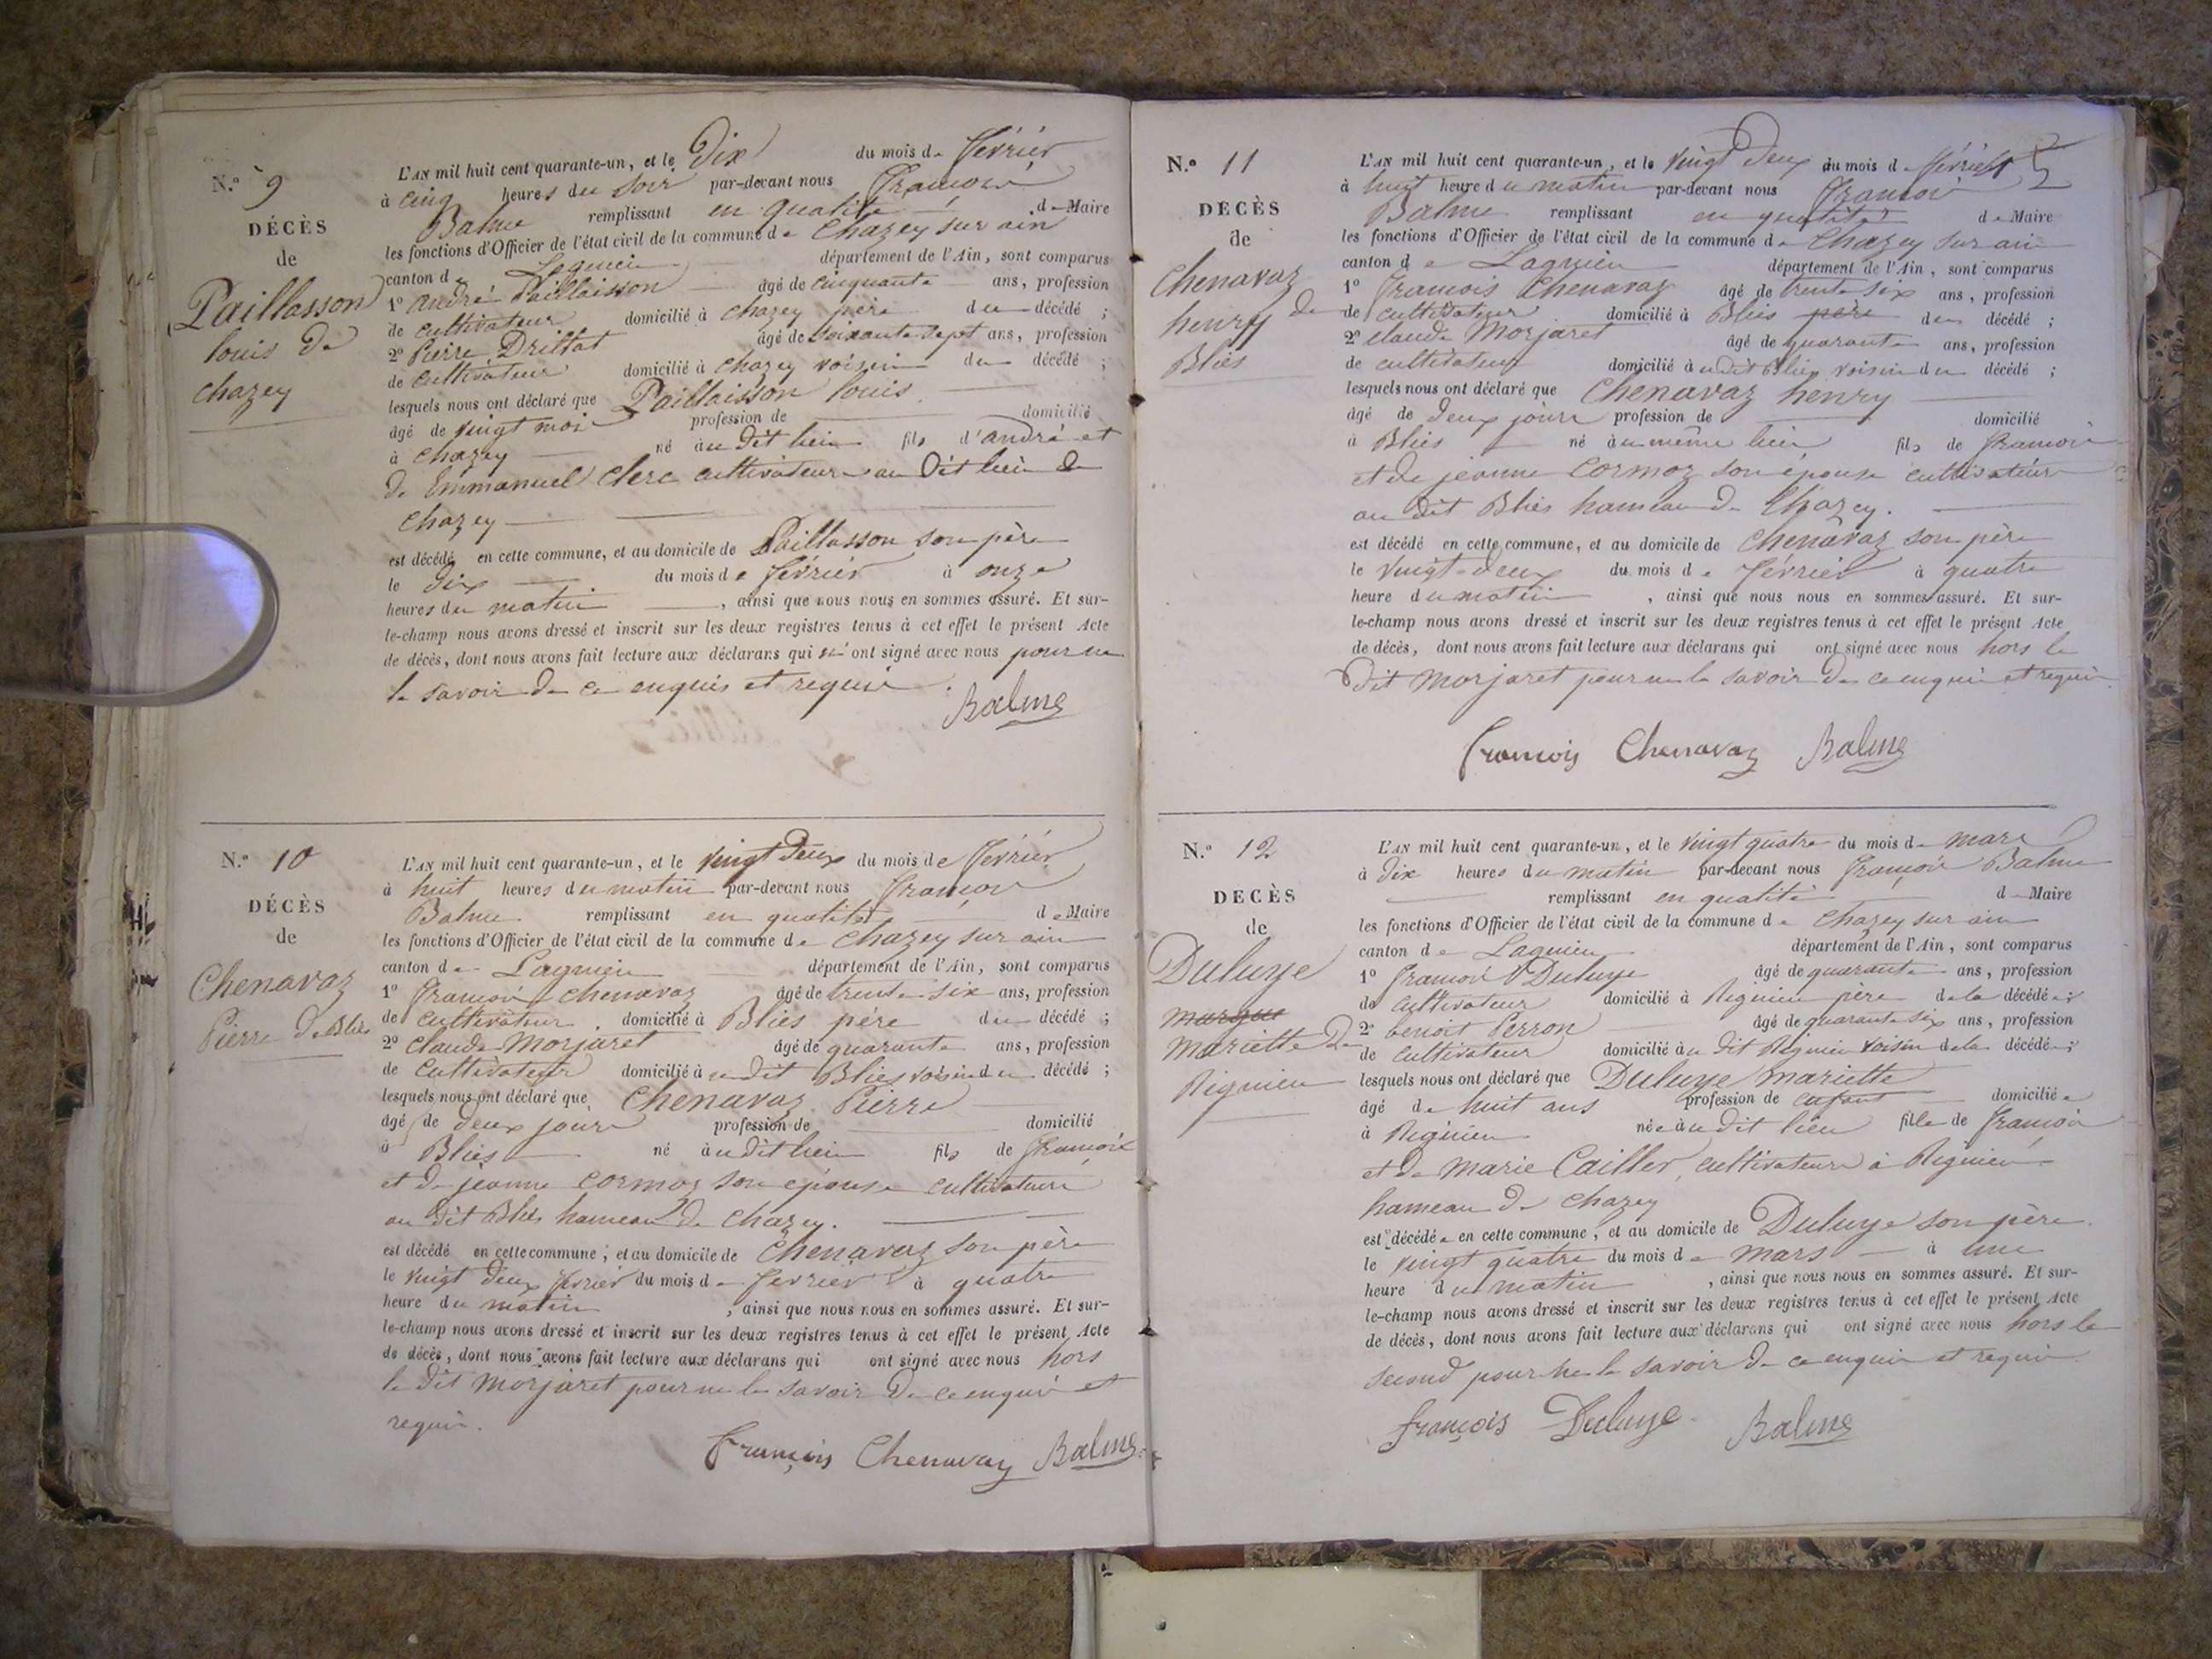 N.º 9
DÉCÈS
de
Paillasson
louis de
chazey
L'AN mil huit cent quarante-un, et le Dix du mois de février
à cinq heures du soir par-devant nous françois
Balme remplissant en qualité de Maire
les fonctions d'Officier de l'état civil de la commune de Chazey sur ain
canton de Lagnieu département de l'Ain, sont comparus
1º andré Paillaisson âgé de cinquante ans, profession
de cultivateur domicilié à chazey père du décédé ;
2º Pierre Drillat âgé de soixante sept ans, profession
de cultivateur domicilié à chazey voisin du décédé ;
lesquels nous ont déclaré que Paillaisson louis
âgé de vingt mois profession de domicilié
à chazey né au dit lieu fils d'andré et
de Emmanuel Clerc cultivateurs au dit lieu de
chazey
est décédé en cette commune, et au domicile de Paillasson son père
le dix du mois de février à onze
heures du matin , ainsi que nous nous en sommes assuré. Et sur-
le-champ nous avons dressé et inscrit sur les deux registres tenus à cet effet le présent Acte
de décès, dont nous avons fait lecture aux déclarans qui n'ont signé avec nous pour ne
le savoir de ce enquis et requis
Balme
N.º 10
DÉCÈS
de
Chenavaz
Pierre de Blies
L'AN mil huit cent quarante-un, et le vingt deux du mois de février
à huit heures du matin par-devant nous françois
Balme remplissant en qualité de Maire
les fonctions d'Officier de l'état civil de la commune de chazey sur ain
canton de Lagnieu département de l'Ain, sont comparus
1º françois chenavaz âgé de trente six ans, profession
de cultivateur domicilié à Blies père du décédé ;
2º claude Morjaret âgé de quarante ans, profession
de cultivateur domicilié à u dit Blies voisin du décédé ;
lesquels nous ont déclaré que Chenavaz Pierre
âgé de deux jours profession de domicilié
à Blies né au dit lieu fils de françois
et de jeanne cormoz son épouse cultivateurs
au dit Blies hameau de Chazey.
est décédé en cette commune, et au domicile de Chenavaz son père
le vingt deux février du mois de février à quatre
heure du matin , ainsi que nous nous en sommes assuré. Et sur-
le-champ nous avons dressé et inscrit sur les deux registres tenus à cet effet le présent Acte
de décès, dont nous avons fait lecture aux déclarans qui ont signé avec nous hors
le dit Morjaret pour ne le savoir de ce enquis et
requis.
françois Chenavaz Balme
N.º 11
DÉCÈS
de
Chenavaz
henry de
Blies
L'AN mil huit cent quarante-un, et le vingt deux du mois de février
à huit heure du matin par-devant nous françois
Balme remplissant en qualité de Maire
les fonctions d'Officier de l'état civil de la commune de Chazey sur ain
canton de Lagnieu département de l'Ain, sont comparus
1º françois Chenavaz âgé de trente six ans, profession
de cultivateur domicilié à Blies père du décédé ;
2º claude Morjaret âgé de quarante ans, profession
de cultivateur domicilié à u dit Blies voisin du décédé ;
lesquels nous ont déclaré que Chenavaz henry
âgé de deux jours profession de domicilié
à Blies né au même lieu fils de françois
et de jeanne Cormoz son épouse cultivateurs
au dit Blies hameau de Chazey.
est décédé en cette commune, et au domicile de Chenavaz son père
le vingt-deux du mois de février à quatre
heure du matin , ainsi que nous nous en sommes assuré. Et sur-
le-champ nous avons dressé et inscrit sur les deux registres tenus à cet effet le présent Acte
de décès, dont nous avons fait lecture aux déclarans qui ont signé avec nous hors le
dit Morjaret pour ne le savoir de ce enquis et requis
françois Chenavaz Balme
N.º 12
DÉCÈS
de
Duluye
marque
Mariette de
Rignieu
L'AN mil huit cent quarante-un, et le vingt quatre du mois de mars
à dix heures du matin par-devant nous françois Balme
remplissant en qualité de Maire
les fonctions d'Officier de l'état civil de la commune de Chazey sur ain
canton de Lagnieu département de l'Ain, sont comparus
1º françois Duluye âgé de quarante ans, profession
de cultivateur domicilié à Rignieu père de la décédée ;
2º benoit Perron âgé de quarante six ans, profession
de cultivateur domicilié à u dit Rignieu voisin de la décédée ;
lesquels nous ont déclaré que Duluye Mariette
âgé de huit ans profession de enfant domiciliée
à Rignieu née au dit lieu fille de françois
et de Marie Cailler, cultivateurs à Rignieu
hameau de chazey
est décédée en cette commune, et au domicile de Duluye son père.
le vingt quatre du mois de mars à une
heure du matin , ainsi que nous nous en sommes assuré. Et sur-
le-champ nous avons dressé et inscrit sur les deux registres tenus à cet effet le présent Acte
de décès, dont nous avons fait lecture aux déclarans qui ont signé avec nous hors le
second pour ne le savoir de ce enquis et requis
françois Duluye. Balme